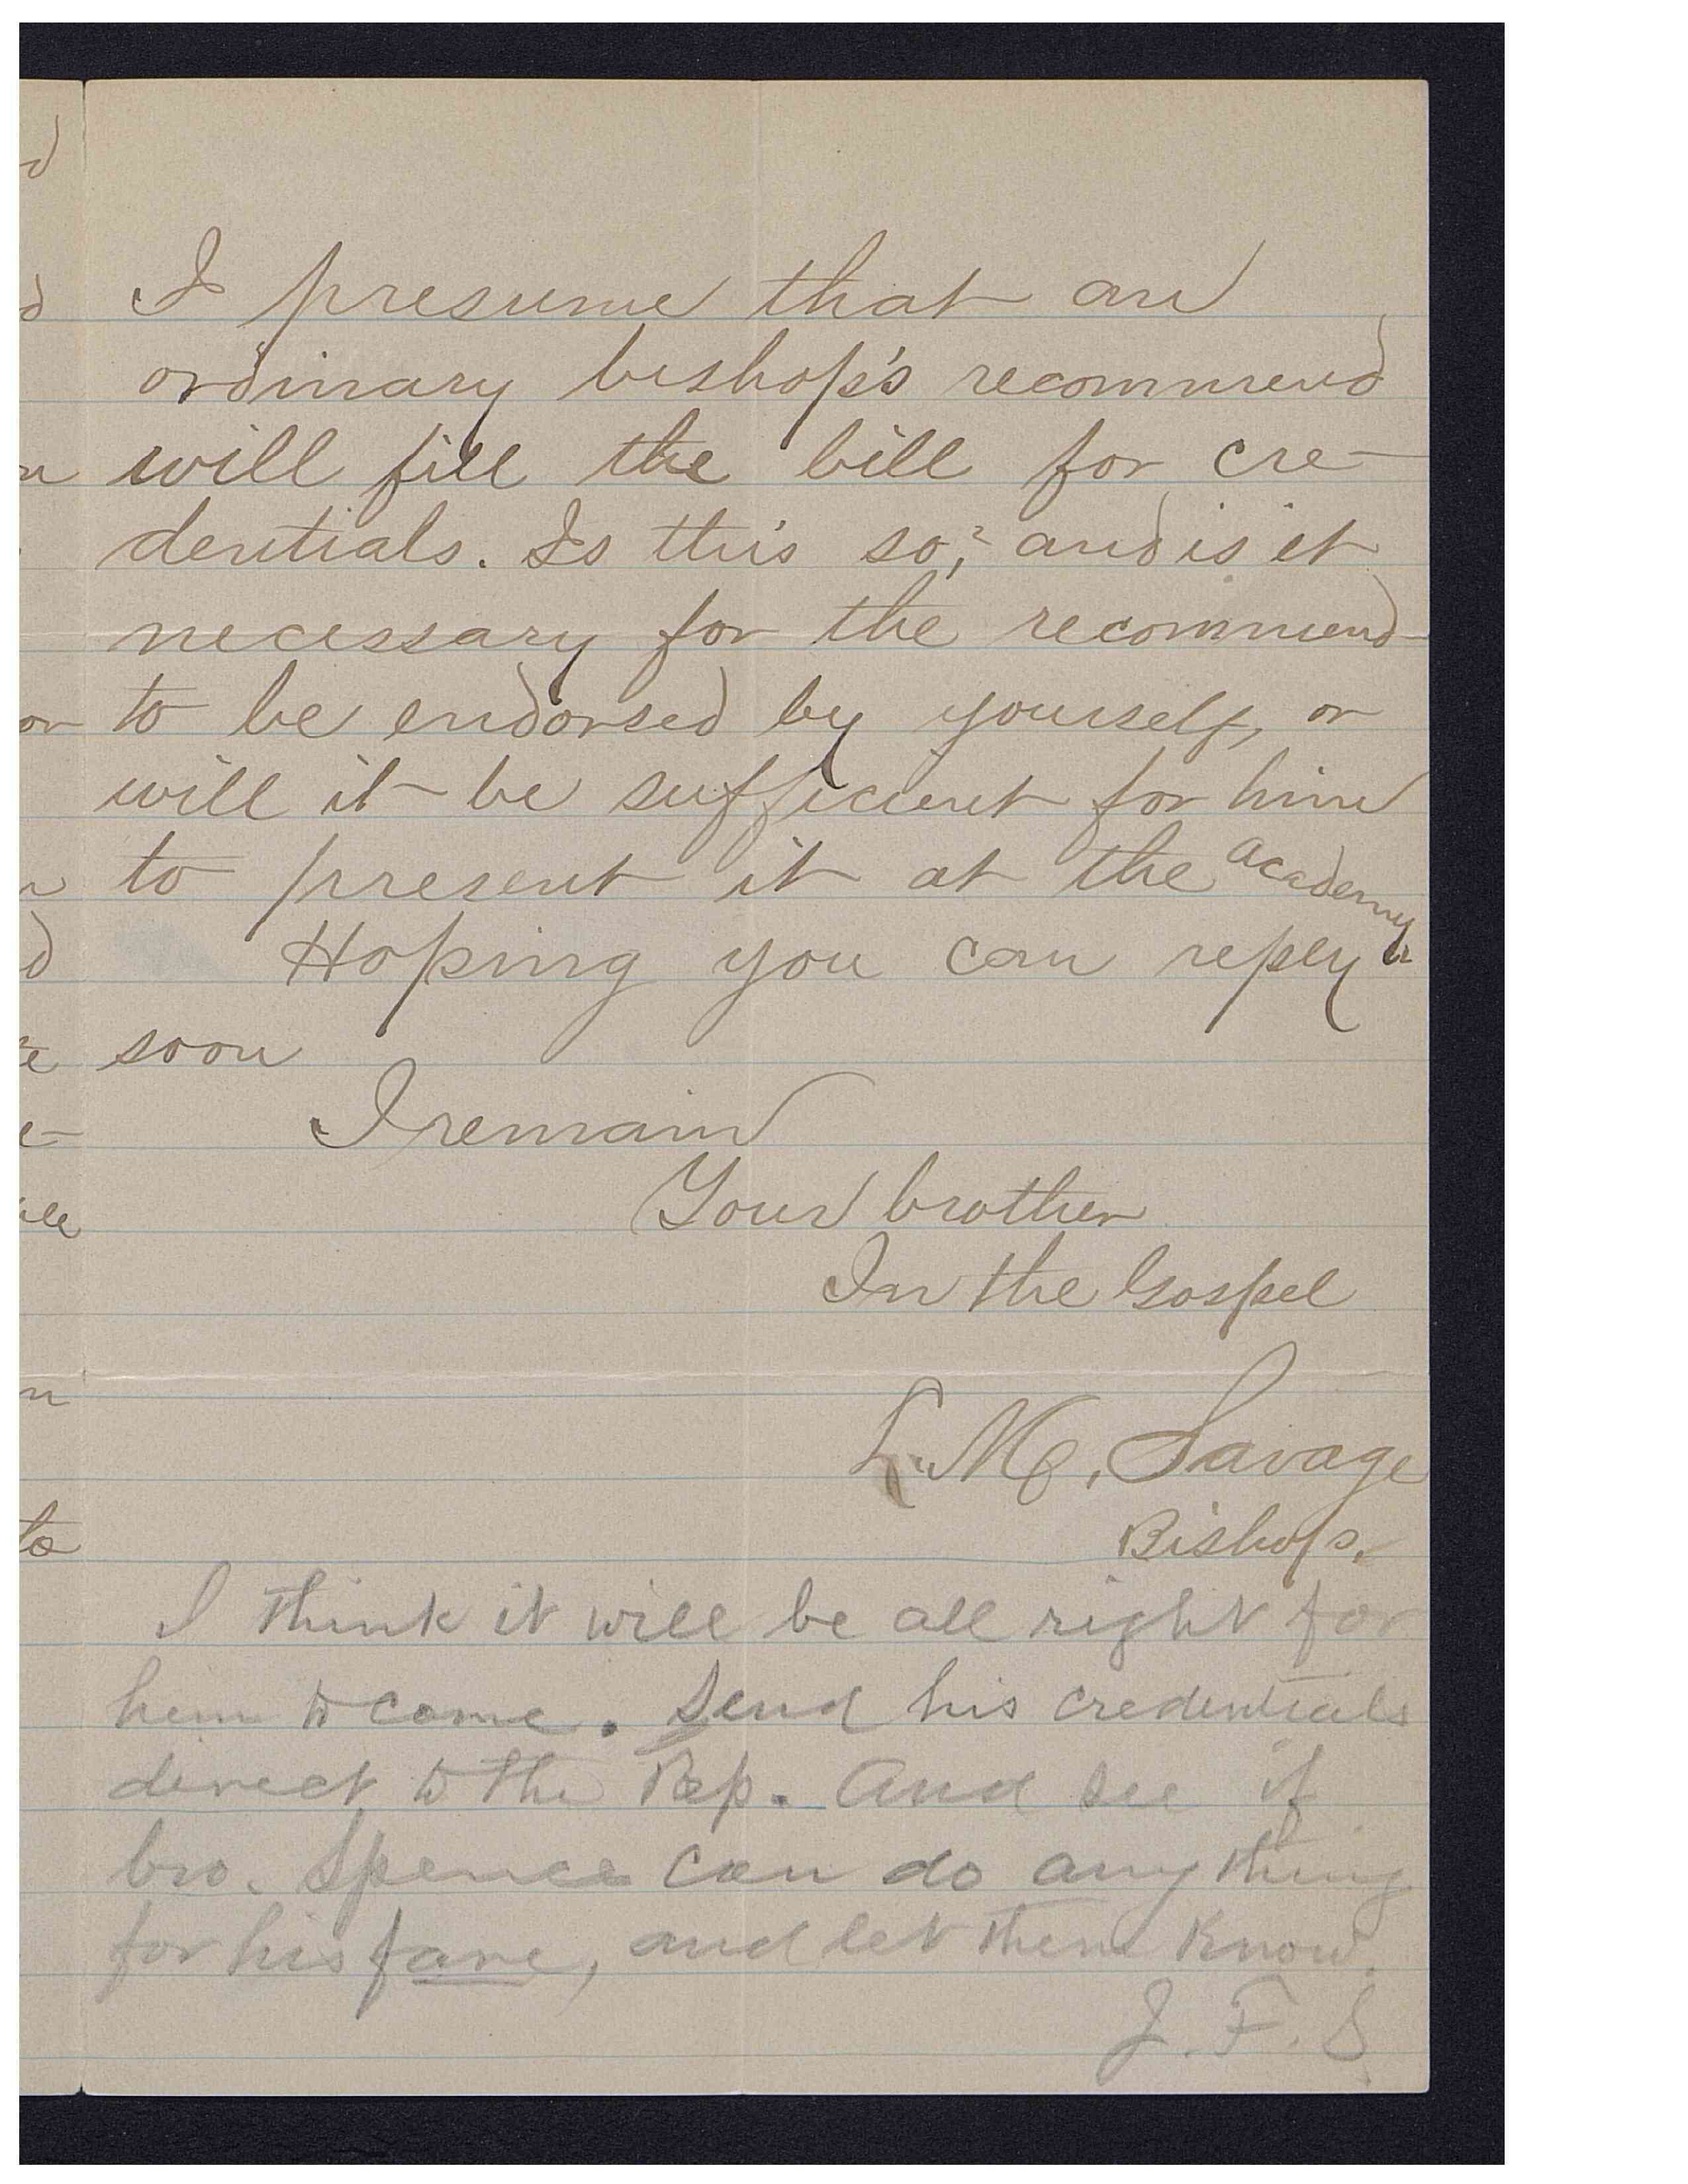 I presume that an
ordinary bishop's recommend
will fill the bill for cre-
dentials. Is this so;? and is it
necessary for the recommend
to be endorsed by yourself, or
will it be sufficient for him
to present it at the academy
Hoping you can reply
soon
I remain
Your brother
In the Gospel
L. M. Savage
Bishop.
I think it will be all right for
him to come. Send his credentials
direct to the Pep. And see if
bro. Spence can do any thing
for his fare, and let them know.
J. F. S